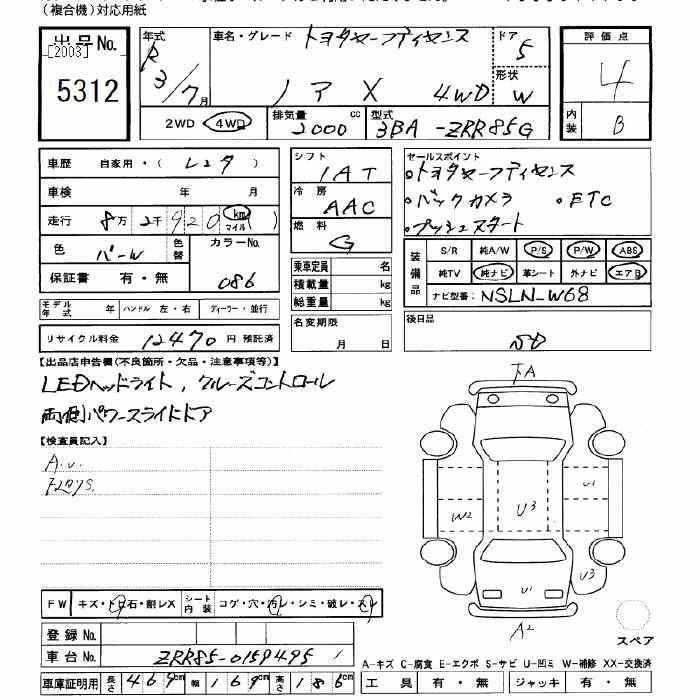 (複合機)対応用紙
出品No.
[2003]
5312
年式 R3/7月
車名・グレード トヨタセーフティセンス
ノア X 4WD
ドア 5
形状 W
2WD 4WD
排気量 2000 cc
型式 3BA-ZRR85G
評価点 4
内装 B
車歴 自家用・(レンタ)
車検 年 月
走行 8万2千920 km マイル
色 パール 色替 カラーNo. 086
保証書 有・無
シフト IAT
冷房 AAC
燃料 G
乗車定員 名
積載量 kg
総重量 kg
セールスポイント
・トヨタセーフティセンス
・バックカメラ ・ETC
・プッシュスタート
装備品 S/R 純A/W P/S P/W ABS
純TV 純ナビ 革シート 外ナビ エアB
ナビ型番: NSLN-W68
モデル年式 年 ハンドル 左・右 ディーラー・並行
リサイクル料金 12470円 預託済
名変期限
月 日
後日品
【出品店申告欄(不良箇所・欠品・注意事項等)】
LEDヘッドライト, クルーズコントロール
両側パワースライドドア
【検査員記入】
A.U.
下A
U1
W2
U3
U3
U1
A2
スペア
FW キズ・トビ石・割レX シート内装 コゲ・穴・汚レ・シミ・破レ・スレ
登録No.
車台No. ZRR85-0159495
車庫証明用 長さ 469cm 幅 169cm 高さ 186cm
A-キズ C-腐食 E-エクボ S-サビ U-凹ミ W-補修 XX-交換済
工具 有・無 ジャッキ 有・無